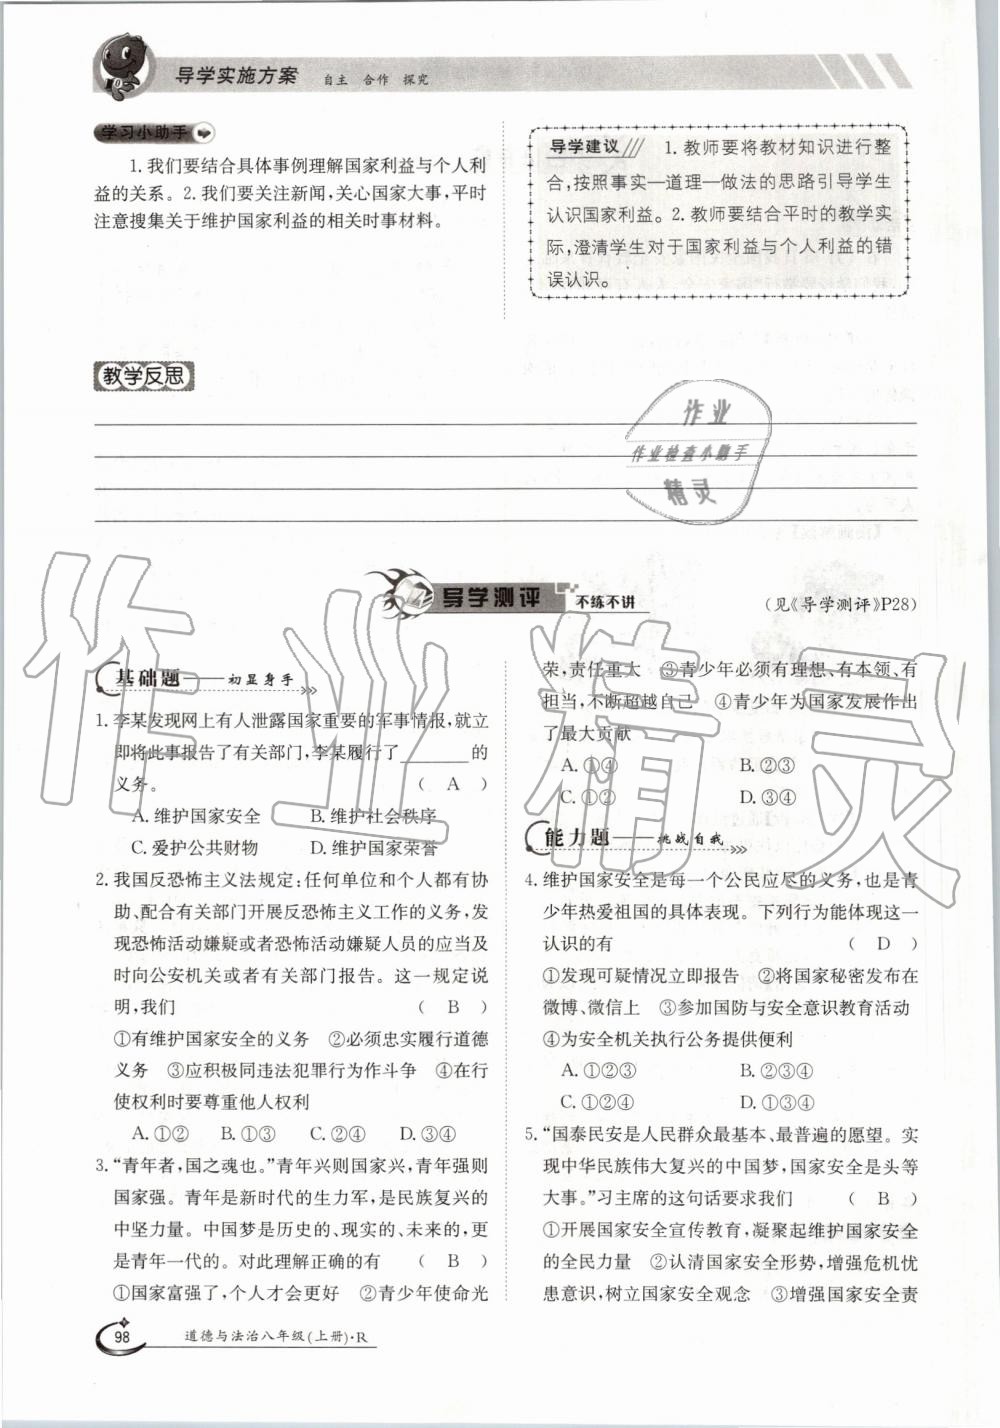 导学实施方案 自主 合作 探究
学习小助手
1.我们要结合具体事例理解国家利益与个人利
益的关系。2.我们要关注新闻,关心国家大事,平时
注意搜集关于维护国家利益的相关时事材料。
导学建议 1.教师要将教材知识进行整
合,按照事实—道理—做法的思路引导学生
认识国家利益。2.教师要结合平时的教学实
际,澄清学生对于国家利益与个人利益的错
误认识。
教学反思
作业
作业检查小助手
精灵
导学测评 不练不讲
(见《导学测评》P28)
作业精灵
基础题——初显身手
1.李某发现网上有人泄露国家重要的军事情报,就立
即将此事报告了有关部门,李某履行了________的
义务。 ( A )
A.维护国家安全 B.维护社会秩序
C.爱护公共财物 D.维护国家荣誉
2.我国反恐怖主义法规定:任何单位和个人都有协
助、配合有关部门开展反恐怖主义工作的义务,发
现恐怖活动嫌疑或者恐怖活动嫌疑人员的应当及
时向公安机关或者有关部门报告。这一规定说
明,我们 ( B )
①有维护国家安全的义务 ②必须忠实履行道德
义务 ③应积极同违法犯罪行为作斗争 ④在行
使权利时要尊重他人权利
A.①② B.①③ C.②④ D.③④
3.“青年者,国之魂也。”青年兴则国家兴,青年强则
国家强。青年是新时代的生力军,是民族复兴的
中坚力量。中国梦是历史的、现实的、未来的,更
是青年一代的。对此理解正确的有 ( B )
①国家富强了,个人才会更好 ②青少年使命光
荣,责任重大 ③青少年必须有理想、有本领、有
担当,不断超越自己 ④青少年为国家发展作出
了最大贡献
A.①④ B.②③
C.①② D.③④
能力题——挑战自我
4.维护国家安全是每一个公民应尽的义务,也是青
少年热爱祖国的具体表现。下列行为能体现这一
认识的有 ( D )
①发现可疑情况立即报告 ②将国家秘密发布在
微博、微信上 ③参加国防与安全意识教育活动
④为安全机关执行公务提供便利
A.①②③ B.②③④
C.①②④ D.①③④
5.“国泰民安是人民群众最基本、最普遍的愿望。实
现中华民族伟大复兴的中国梦,国家安全是头等
大事。”习主席的这句话要求我们 ( B )
①开展国家安全宣传教育,凝聚起维护国家安全
的全民力量 ②认清国家安全形势,增强危机忧
患意识,树立国家安全观念 ③增强国家安全责
98 道德与法治八年级(上册)·R